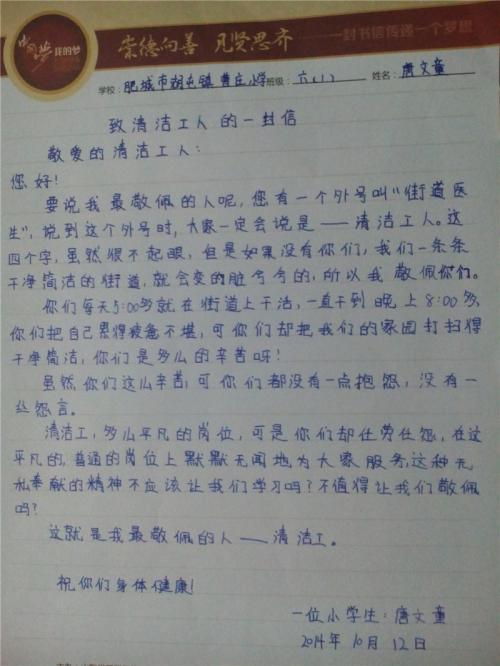 中国梦 我的梦 崇德向善 见贤思齐 一封书信传递一个梦想
学校:肥城市湖屯镇曹庄小学班级:六(1) 姓名:唐文童
致清洁工人的一封信
敬爱的清洁工人:
您好!
要说我最敬佩的人呢,您有一个外号叫"街道医
生",说到这个外号时,大家一定会说是——清洁工人。这
四个字,虽然很不起眼,但是如果没有你们,我们一条条
干净简洁的街道,就会变的脏兮兮的,所以我敬佩你们。
你们每天5:00多就在街道上干活,一直干到晚上8:00多,
你们把自己累得疲惫不堪,可你们却把我们的家园打扫得
干净简洁,你们是多么的辛苦呀!
虽然你们这么辛苦,可你们都没有一点抱怨,没有一
丝怨言。
清洁工,多么平凡的岗位,可是你们却任劳任怨,在这
平凡的,普通的岗位上默默无闻地为大家服务,这种无
私奉献的精神不应该让我们学习吗?不值得让我们敬佩
吗?
这就是我最敬佩的人——清洁工。
祝你们身体健康!
一位小学生:唐文童
2014年10月12日